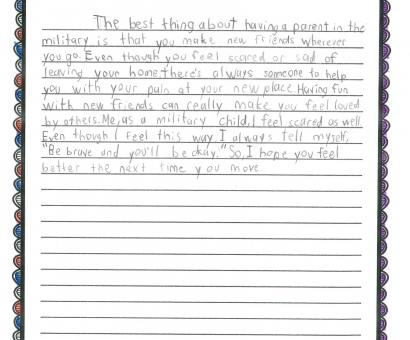 The best thing about having a parent in the
military is that you make new friends wherever
you go. Even though you feel scared or sad of
leaving your home there's always someone to help
you with your pain at your new place. Having fun
with new friends can really make you feel loved
by others. Me, as a military child, I feel scared as well.
Even though I feel this way I always tell myself,
"Be brave and you'll be okay." So, I hope you feel
better the next time you move